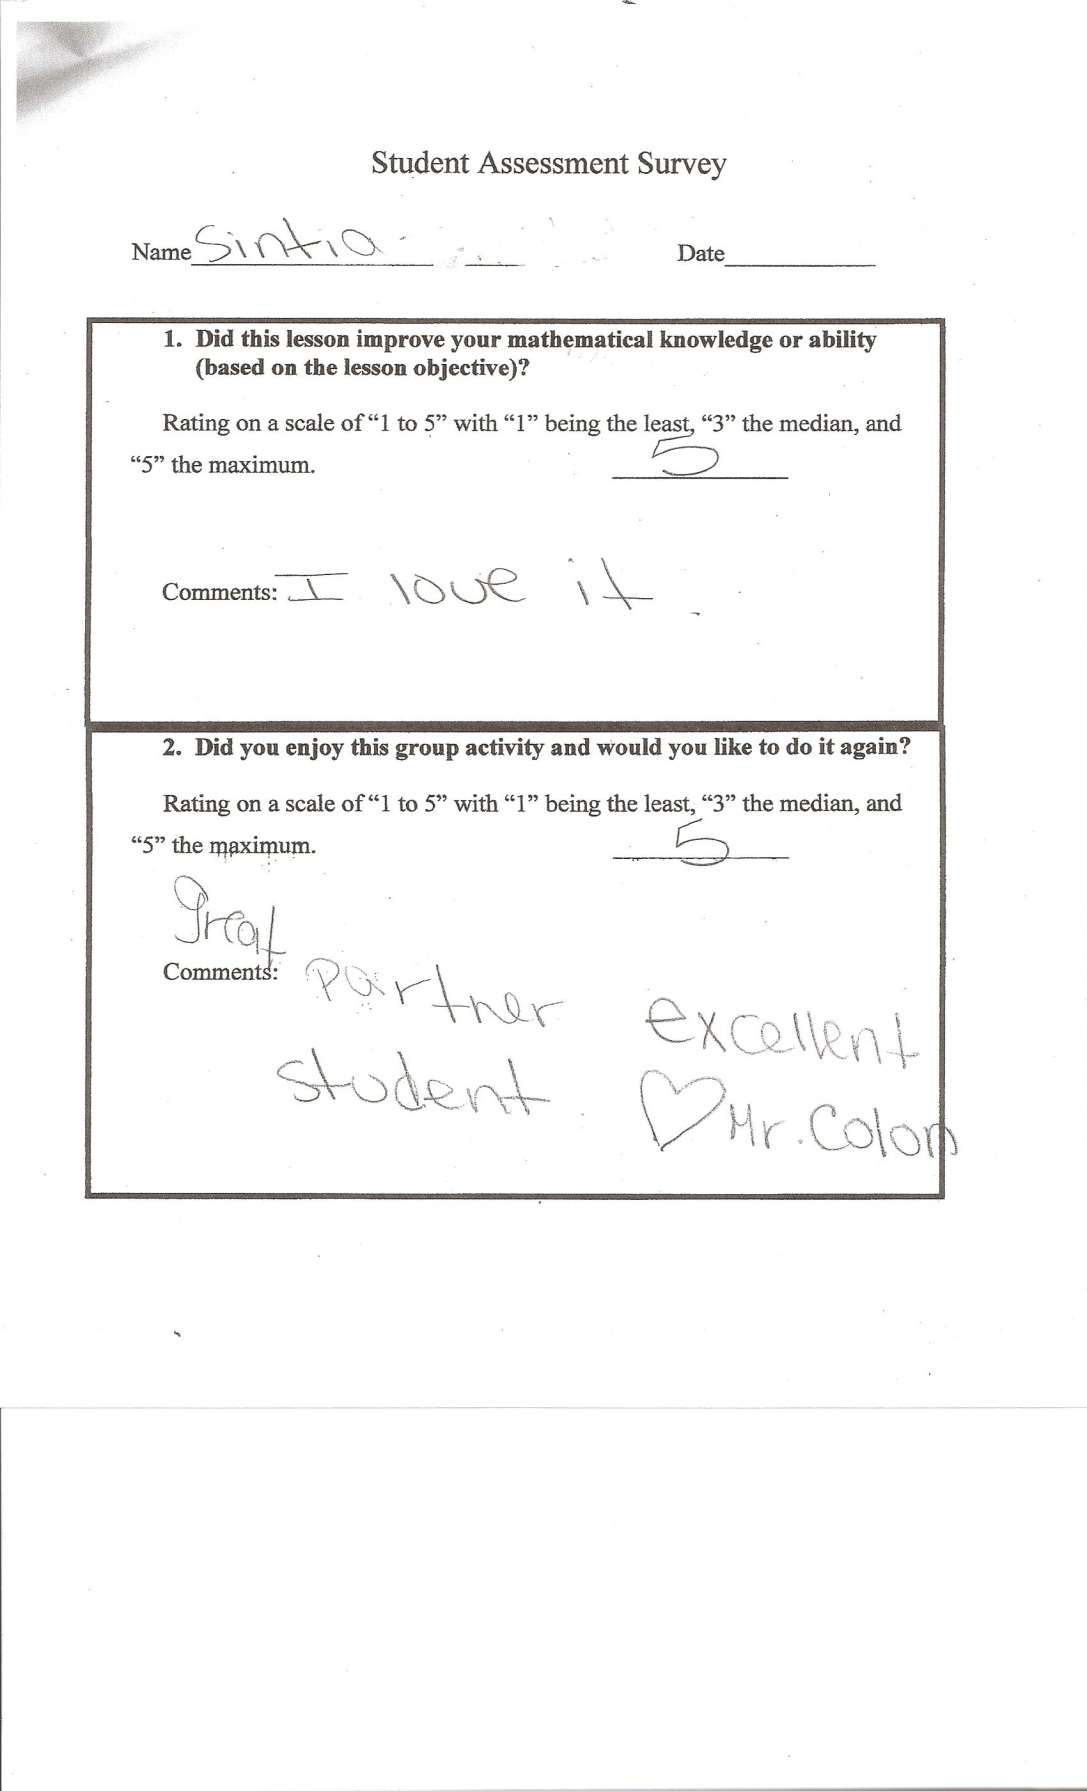 Student Assessment Survey
Name Sintia Date
1. Did this lesson improve your mathematical knowledge or ability
(based on the lesson objective)?
Rating on a scale of “1 to 5” with “1” being the least, “3” the median, and
“5” the maximum. 5
Comments: I love it.
2. Did you enjoy this group activity and would you like to do it again?
Rating on a scale of “1 to 5” with “1” being the least, “3” the median, and
“5” the maximum. 5
great
Comments: partner excellent
student ♡ Mr. Colon